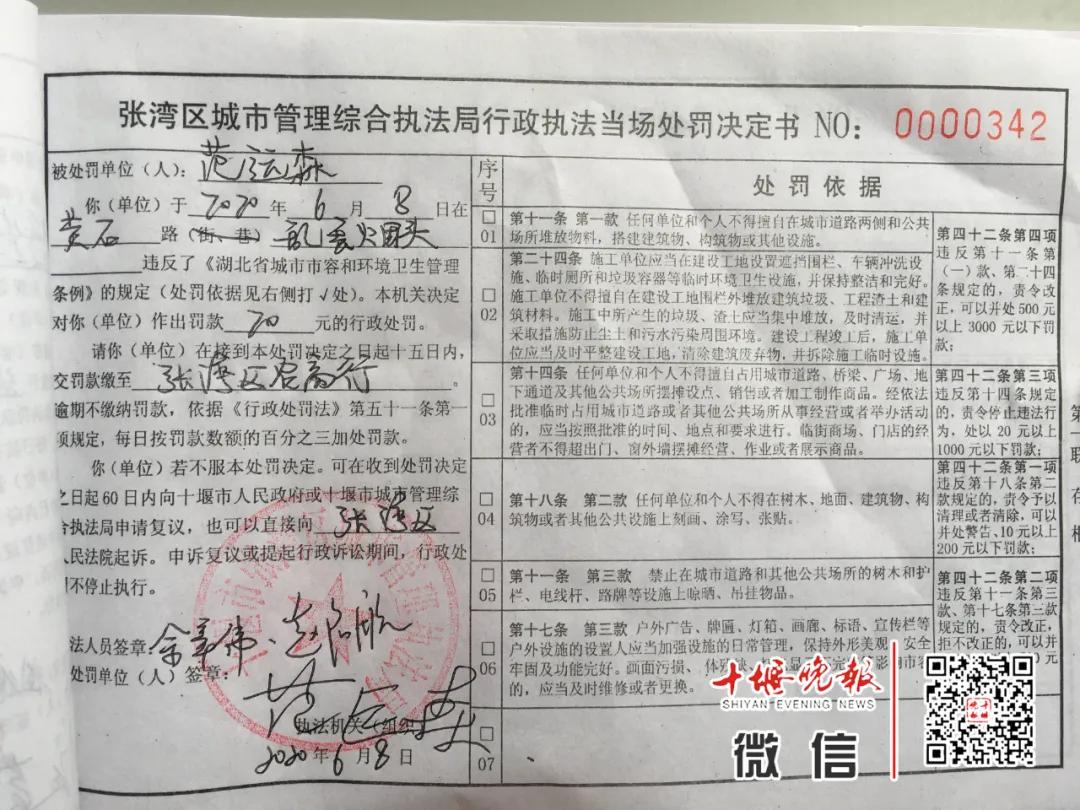 张湾区城市管理综合执法局行政执法当场处罚决定书 NO: 0000342
被处罚单位(人): 范运森
你(单位)于 2020 年 6 月 8 日在
黄石 路(街、巷) 乱丢烟头
违反了《湖北省城市市容和环境卫生管理
条例》的规定(处罚依据见右侧打√处)。本机关决定
对你(单位)作出罚款 20 元的行政处罚。
请你(单位)在接到本处罚决定之日起十五日内,
交罚款缴至 张湾区农商行 。
逾期不缴纳罚款,依据《行政处罚法》第五十一条第一
项规定,每日按罚款数额的百分之三加处罚款。
你(单位)若不服本处罚决定。可在收到处罚决定
之日起60日内向十堰市人民政府或十堰市城市管理综
合执法局申请复议,也可以直接向 张湾区
人民法院起诉。申诉复议或提起行政诉讼期间,行政处
罚不停止执行。
法人员签章:
处罚单位(人)签章:
执法机关(组织
2020年6月8日
序号
处罚依据
□
01
第十一条 第一款 任何单位和个人不得擅自在城市道路两侧和公共
场所堆放物料,搭建建筑物、构筑物或其他设施。
□
02
第二十四条 施工单位应当在建设工地设置遮挡围栏、车辆冲洗设
施、临时厕所和垃圾容器等临时环境卫生设施,并保持整洁和完好。
施工单位不得擅自在建设工地围栏外堆放建筑垃圾、工程渣土和建
筑材料。施工中所产生的垃圾、渣土应当集中堆放,及时清运,并
采取措施防止尘土和污水污染周围环境。建设工程竣工后,施工单
位应当及时平整建设工地,清除建筑废弃物,并拆除施工临时设施。
第四十二条第四项
违反第十一条第
(一)款、第二十四
条规定的,责令改
正,可以并处500元
以上3000元以下罚
款;
□
03
第十四条 任何单位和个人不得擅自占用城市道路、桥梁、广场、地
下通道及其他公共场所摆摊设点、销售或者加工制作商品。经依法
批准临时占用城市道路或者其他公共场所从事经营或者举办活动
的,应当按照批准的时间、地点和要求进行。临街商场、门店的经
营者不得超出门、窗外墙摆摊经营、作业或者展示商品。
第四十二条第三项
违反第十四条规定
的,责令停止违法行
为,处以20元以上
1000元以下罚款;
□
04
第十八条 第二款 任何单位和个人不得在树木、地面、建筑物、构
筑物或者其他公共设施上刻画、涂写、张贴。
第四十二条第一项
违反第十八条第二
款规定的,责令予以
清理或者清除,可以
并处警告、10元以上
200元以下罚款;
□
05
第十一条 第三款 禁止在城市道路和其他公共场所的树木和护
栏、电线杆、路牌等设施上晾晒、吊挂物品。
□
06
第十七条 第三款 户外广告、牌匾、灯箱、画廊、标语、宣传栏等
户外设施的设置人应当加强设施的日常管理,保持外形美观、安全
牢固及功能完好。画面污损、
的,应当及时维修或者更换。
第四十二条第二项
违反第十一条第三
款、第十七条第三款
规定的,责令改正,
拒不改正的,可以并
□
07
第一联
存
根
十堰晚报
SHIYAN EVENING NEWS
微信